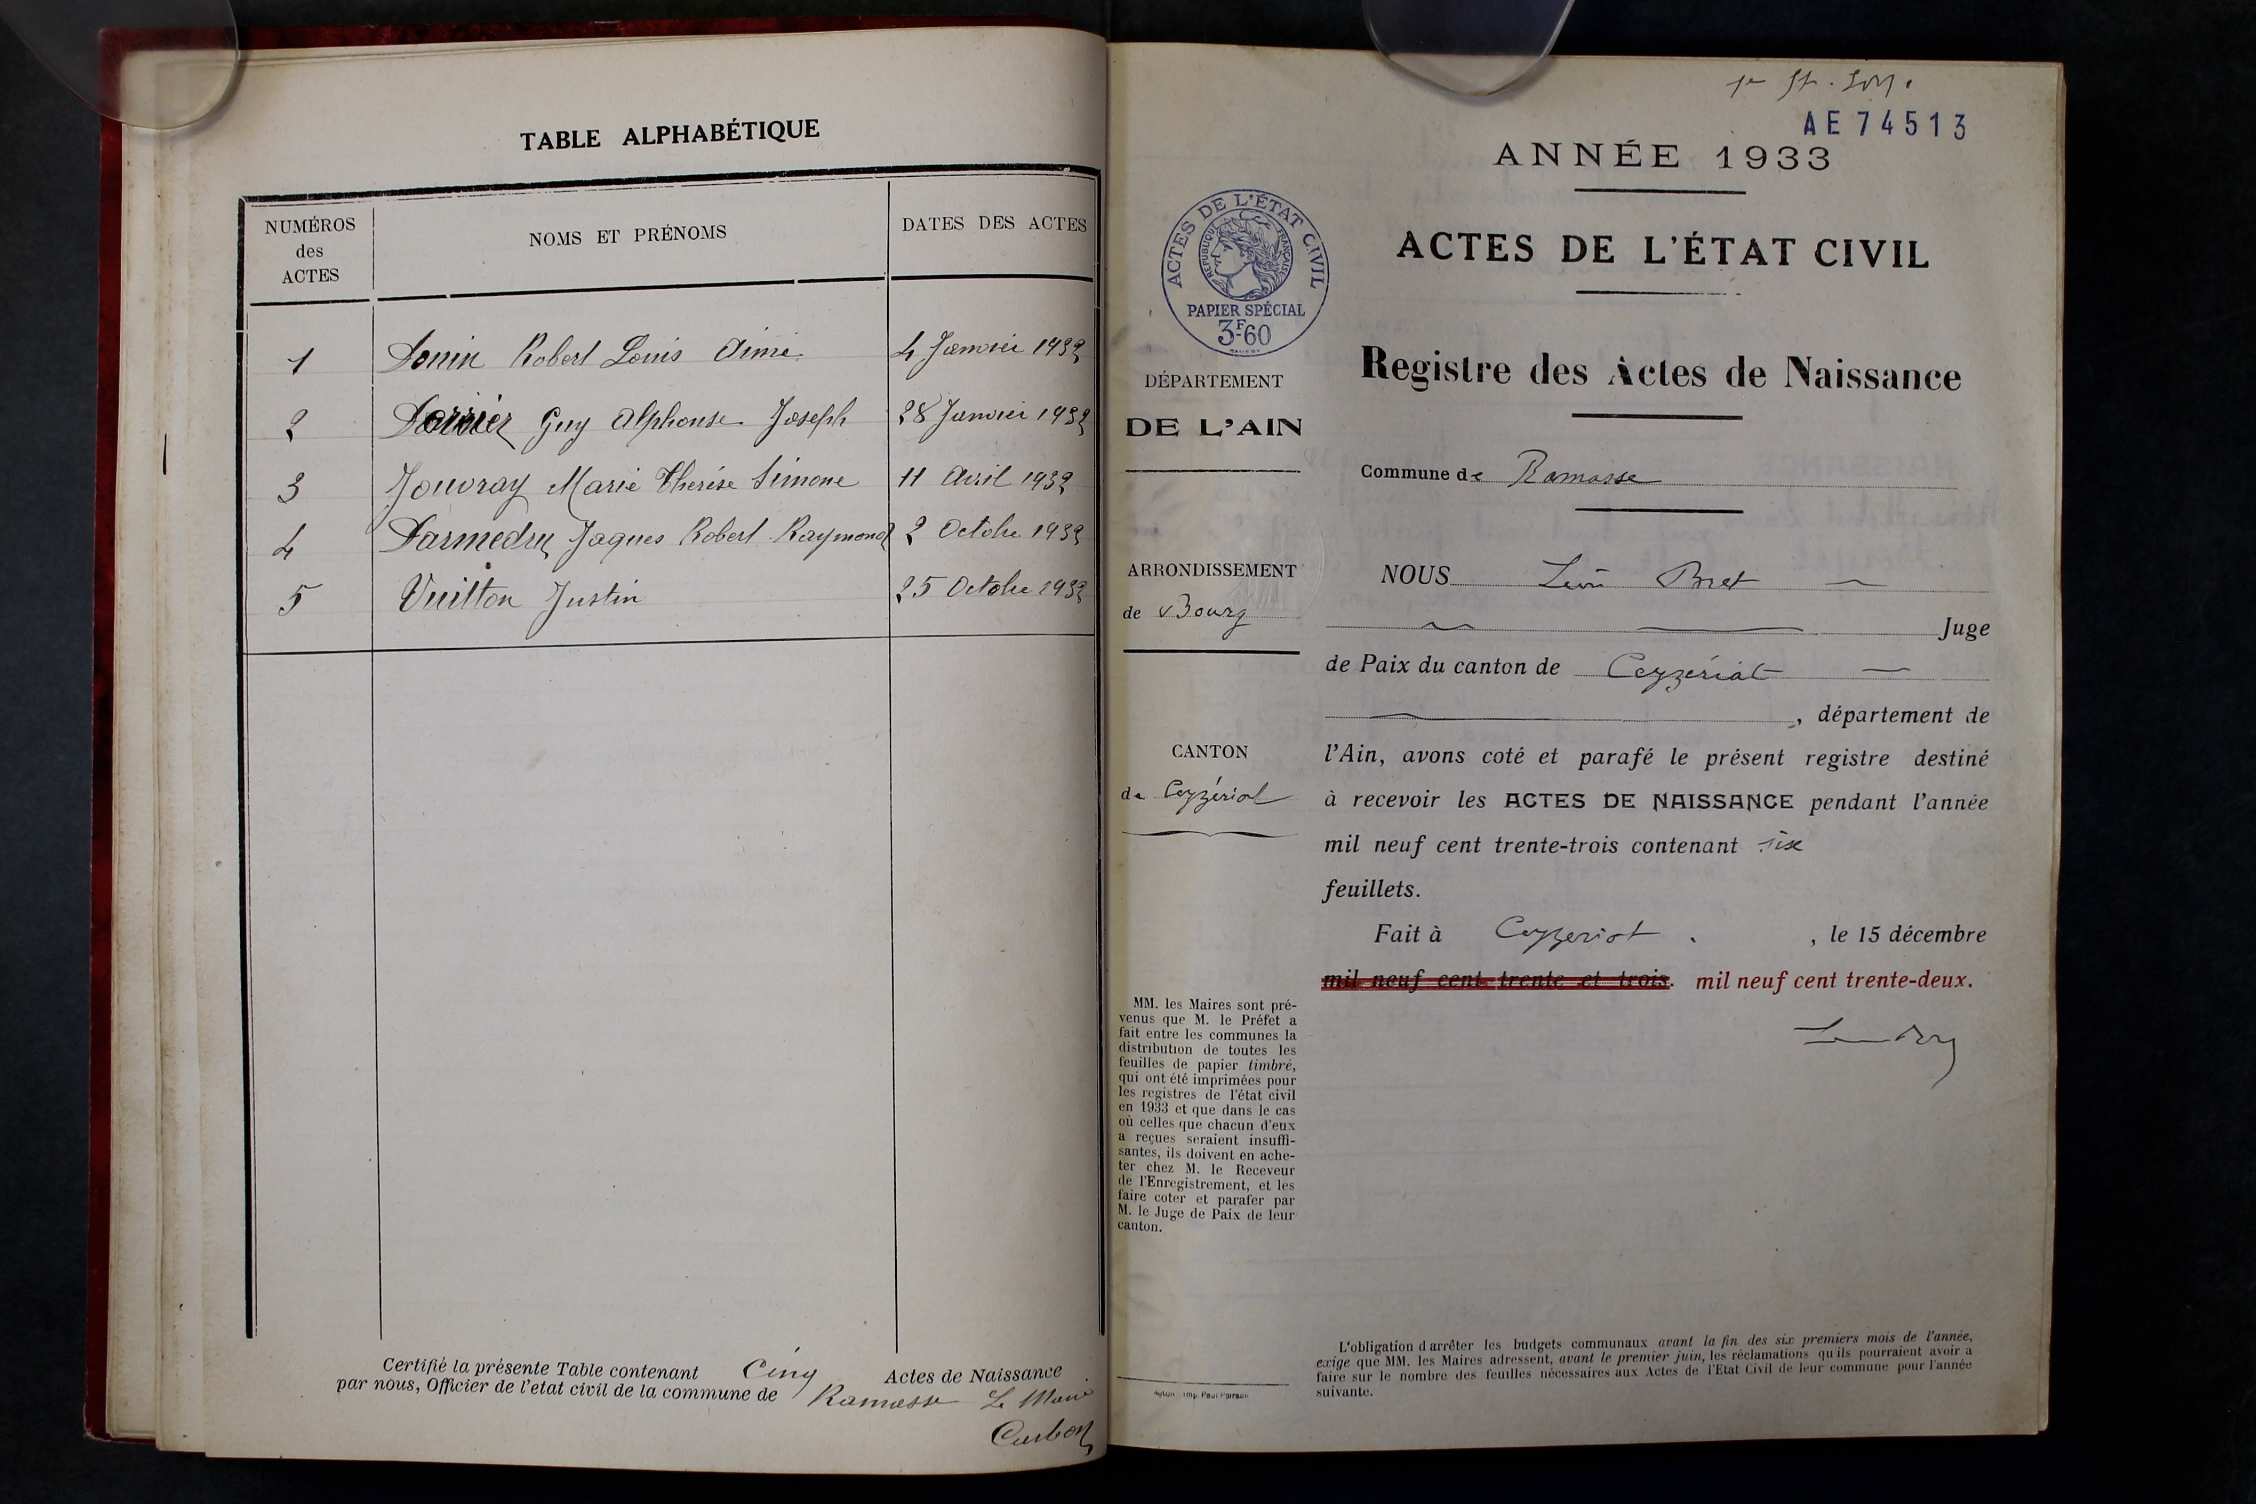 TABLE ALPHABÉTIQUE
NUMÉROS des ACTES
NOMS ET PRÉNOMS
DATES DES ACTES
1 Robert Louis Aimé 4 Janvier 1932
2 Guy Alphonse Joseph 28 Janvier 1932
3 Jouvray Marie Thérèse Simone 11 Avril 1932
4 Darmedru Jaques Robert Raymond 2 Octobre 1932
5 Vuitton Justin 25 Octobre 1932
Certifié la présente Table contenant Cinq Actes de Naissance
par nous, Officier de l'état civil de la commune de Ramasse Le Maire
AE 74513
ANNÉE 1933
ACTES DE L'ÉTAT CIVIL
ACTES DE L'ÉTAT CIVIL
RÉPUBLIQUE FRANÇAISE
PAPIER SPÉCIAL
3F60
Registre des Actes de Naissance
DÉPARTEMENT
DE L'AIN
Commune de Ramasse
ARRONDISSEMENT
de Bourg
CANTON
de Ceyzériat
NOUS Léon
Juge
de Paix du canton de Ceyzériat
, département de
l'Ain, avons coté et parafé le présent registre destiné
à recevoir les ACTES DE NAISSANCE pendant l'année
mil neuf cent trente-trois contenant six
feuillets.
Fait à Ceyzeriat , le 15 décembre
mil neuf cent trente et trois. mil neuf cent trente-deux.
MM. les Maires sont pré-
venus que M. le Préfet a
fait entre les communes la
distribution de toutes les
feuilles de papier timbré,
qui ont été imprimées pour
les registres de l'état civil
en 1933 et que dans le cas
où celles que chacun d'eux
a reçues seraient insuffi-
santes, ils doivent en ache-
ter chez M. le Receveur
de l'Enregistrement, et les
faire coter et parafer par
M. le Juge de Paix de leur
canton.
L'obligation d'arrêter les budgets communaux avant la fin des six premiers mois de l'année,
exige que MM. les Maires adressent, avant le premier juin, les réclamations qu'ils pourraient avoir à
faire sur le nombre des feuilles nécessaires aux Actes de l'Etat Civil de leur commune pour l'année
suivante.